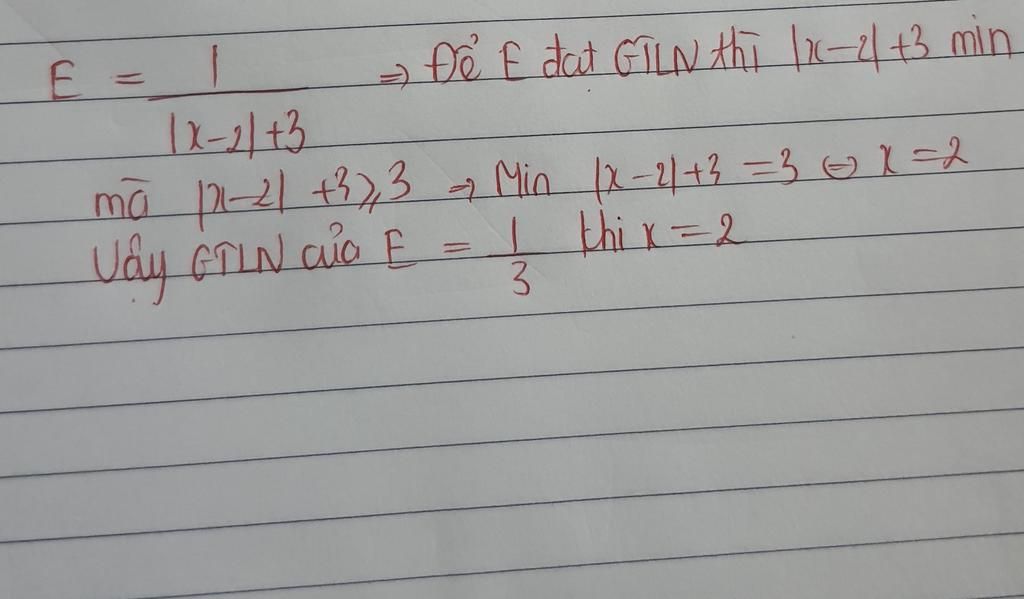 E = 1/(|x-2|+3) => Để E đạt GTLN thì |x-2|+3 min
mà |x-2| +3 ≥ 3 => Min |x-2|+3 = 3 <=> x = 2
Vậy GTLN của E = 1/3 khi x = 2